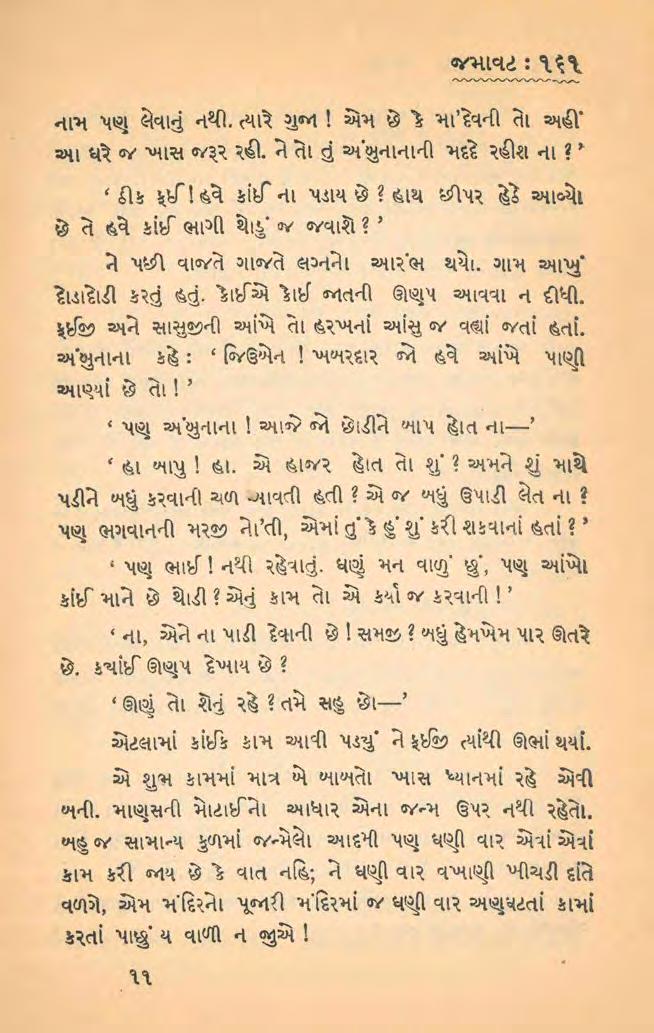 જમાવટ : ૧૬૧
નામ પણ લેવાનું નથી. ત્યારે ગુજા ! એમ છે કે મા'દેવની તો અહીં
આ ઘરે જ ખાસ જરૂર રહી. ને તો તું અંબુનાનાની મદદે રહીશ ના ? ’
‘ ઠીક ફઈ ! હવે કાંઈ ના પડાય છે ? હાથ છીપર હેઠે આવ્યો
છે તે હવે કાંઈ ભાગી થોડું જ જવાશે ? ’
ને પછી વાજતે ગાજતે લગ્નનો આરંભ થયો. ગામ આખું
દોડાદોડી કરતું હતું. કોઈએ કોઈ જાતની ઊણપ આવવા ન દીધી.
ફઈજી અને સાસુજીની આંખે તો હરખનાં આંસુ જ વહ્યાં જતાં હતાં.
અંબુનાના કહે : ‘ જિઉબેન ! ખબરદાર જો હવે આંખે પાણી
આણ્યાં છે તો ! ’
‘ પણ અંબુનાના ! આજે જો છોડીને બાપ હોત ના—’
‘ હા બાપુ ! હા. એ હાજર હોત તો શું ? અમને શું માથે
પડીને બધું કરવાની ચળ આવતી હતી ? એ જ બધું ઉપાડી લેત ના ?
પણ ભગવાનની મરજી નો'તી, એમાં તું કે હું શું કરી શકવાનાં હતાં ? ’
‘ પણ ભાઈ ! નથી રહેવાતું. ઘણું મન વાળું છું, પણ આંખો
કાંઈ માને છે થોડી ? એનું કામ તો એ કર્યા જ કરવાની ! ’
‘ ના, એને ના પાડી દેવાની છે ! સમજી ? બધું હેમખેમ પાર ઊતરે
છે. ક્યાંઈ ઊણપ દેખાય છે ?
‘ ઊણું તો શેનું રહે ? તમે સહુ છો—’
એટલામાં કાંઈક કામ આવી પડ્યું ને ફઈજી ત્યાંથી ઊભાં થયાં.
એ શુભ કામમાં માત્ર બે બાબતો ખાસ ધ્યાનમાં રહે એવી
બની. માણસની મોટાઈનો આધાર એના જન્મ ઉપર નથી રહેતો.
બહુ જ સામાન્ય કુળમાં જન્મેલો આદમી પણ ઘણી વાર એવાં એવાં
કામ કરી જાય છે કે વાત નહિ; ને ઘણી વાર વખાણી ખીચડી દાંતે
વળગે, એમ મંદિરનો પૂજારી મંદિરમાં જ ઘણી વાર અણઘટતાં કામાં
કરતાં પાછું ય વાળી ન જુએ !
૧૧